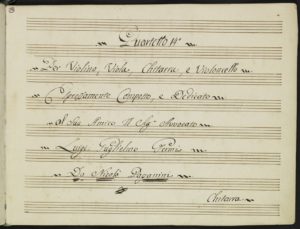 Quartetto 14°
Per Violino, Viola, Chitarra, e Violoncello
Espressamente Composto, e Dedicato
al Suo Amico Il Sig.r Avvocato
Luigi Guglielmo Germi
Da Nicolò Paganini
Chitarra